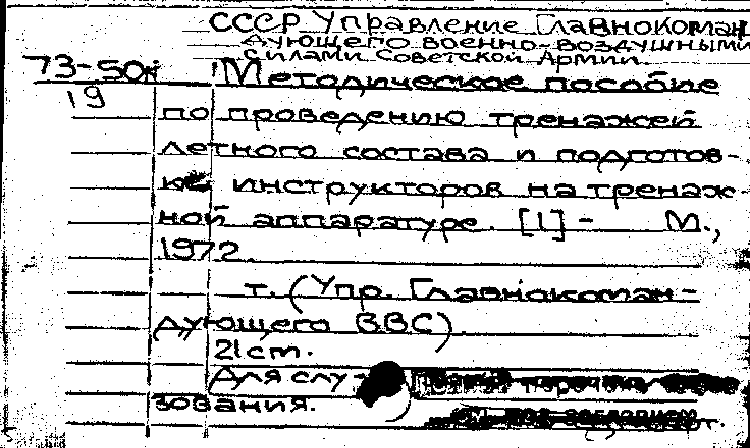 СССР Управление Главнокоман
дующего военно-воздушными
силами Советской Армии.
73-50к Методическое пособие
19
по проведению тренажей
летного состава и подготов-
ке инструкторов на тренаж-
ной аппаратуре. [1] - М.,
1972.
т. (Упр. Главнокоман-
дующего ВВС).
21 cm.
Для слу
зования.